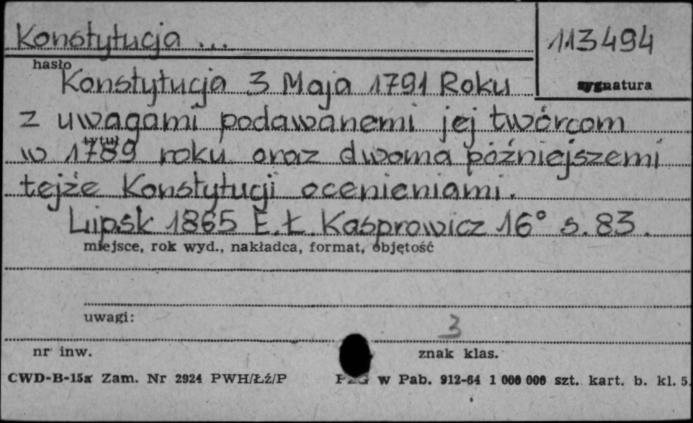 Konstytucja ...
113494
hasło
sygnatura
Konstytucja 3 Maja 1791 Roku
z uwagami podawanemi jej twórcom
tytuł
w 1789 roku oraz dwoma późniejszemi
tejże Konstytucji ocenieniami.
Lipsk 1865 E.Ł. Kasprowicz 16° s. 83.
miejsce, rok wyd., nakładca, format, objętość
uwagi:
3
nr inw.
znak klas.
CWD-B-15a Zam. Nr 2924 PWH/Łź/P
PZG w Pab. 912-64 1 000 000 szt. kart. b. kl. 5.